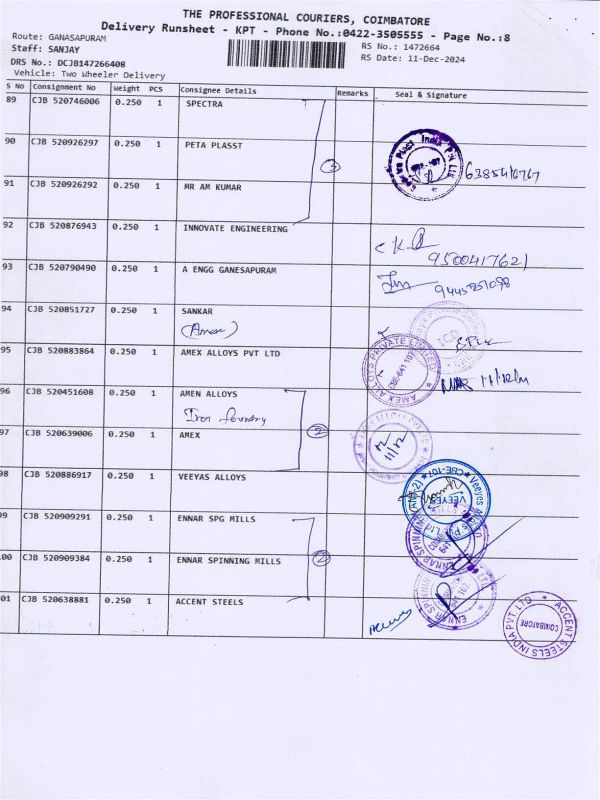 THE PROFESSIONAL COURIERS, COIMBATORE
Delivery Runsheet - KPT - Phone No.:0422-3505555 - Page No.:8
Route: GANASAPURAM
RS No.: 1472664
Staff: SANJAY
RS Date: 11-Dec-2024
DRS No.: DCJB147266408
Vehicle: Two Wheeler Delivery
S No Consignment No Weight PCS Consignee Details Remarks Seal & Signature
89 CJB 520746006 0.250 1 SPECTRA
90 CJB 520926297 0.250 1 PETA PLASST
3 6385410767
91 CJB 520926292 0.250 1 MR AM KUMAR
92 CJB 520876943 0.250 1 INNOVATE ENGINEERING
9500417621
93 CJB 520790490 0.250 1 A ENGG GANESAPURAM
9445851098
94 CJB 520851727 0.250 1 SANKAR
(Amex)
95 CJB 520883864 0.250 1 AMEX ALLOYS PVT LTD
AMEX ALLOYS PRIVATE LIMITED
CBE-641 107
96 CJB 520451608 0.250 1 AMEN ALLOYS
Iron foundry
2
97 CJB 520639006 0.250 1 AMEX
11/12
98 CJB 520886917 0.250 1 VEEYAS ALLOYS
99 CJB 520909291 0.250 1 ENNAR SPG MILLS
2
100 CJB 520909384 0.250 1 ENNAR SPINNING MILLS
101 CJB 520638881 0.250 1 ACCENT STEELS
ACCENT STEELS INDIA PVT. LTD
COIMBATORE